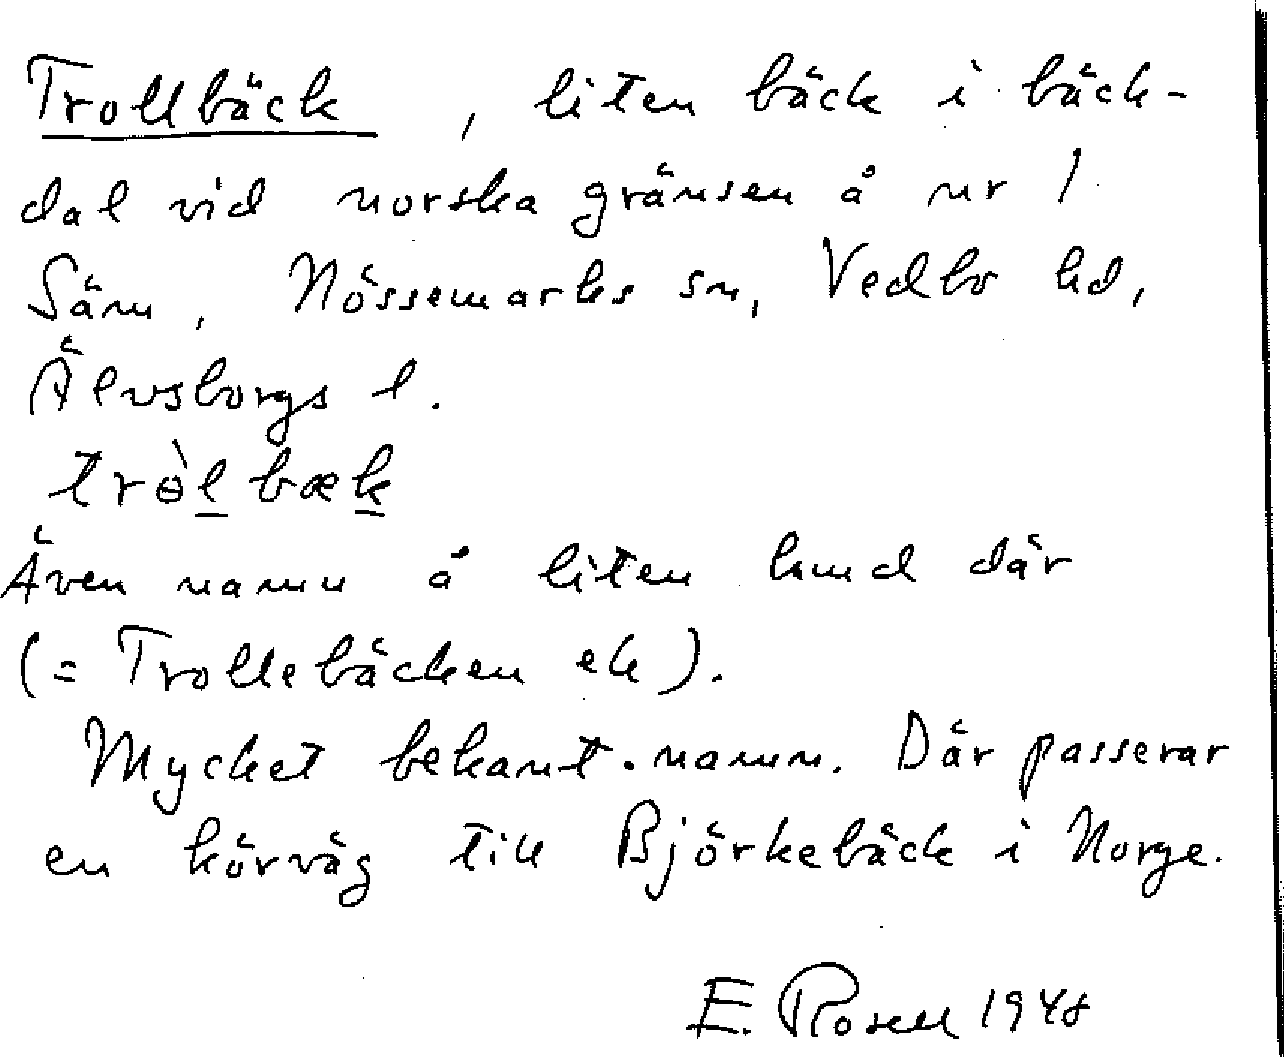 Trollbäck, liten bäck i bäck-
dal vid norska gränsen å nr 1
Säm, Nössemarks sn, Vedbo hd,
Älvsborgs l.
trɵ̀l bæk
Även namn å liten lund där
(= Trollebäcken ek).
Mycket bekant namn. Där passerar
en körväg till Björkebäck i Norge.
E. Rosell 1948